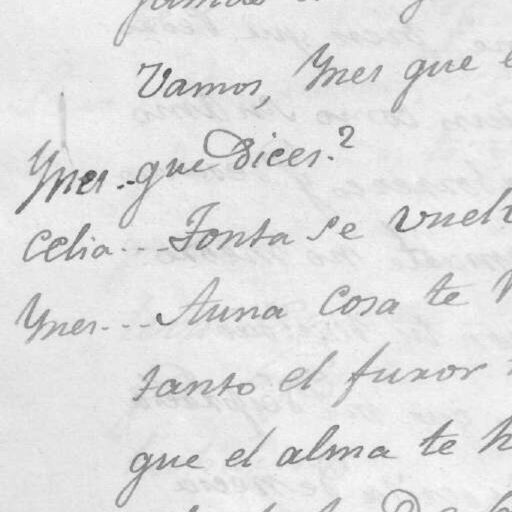 Vamos, Ynes que
Ynes.. que dices.?
Celia... Tonta se vuelt
Ynes... Auna cosa te
tanto el furor
que el alma te h